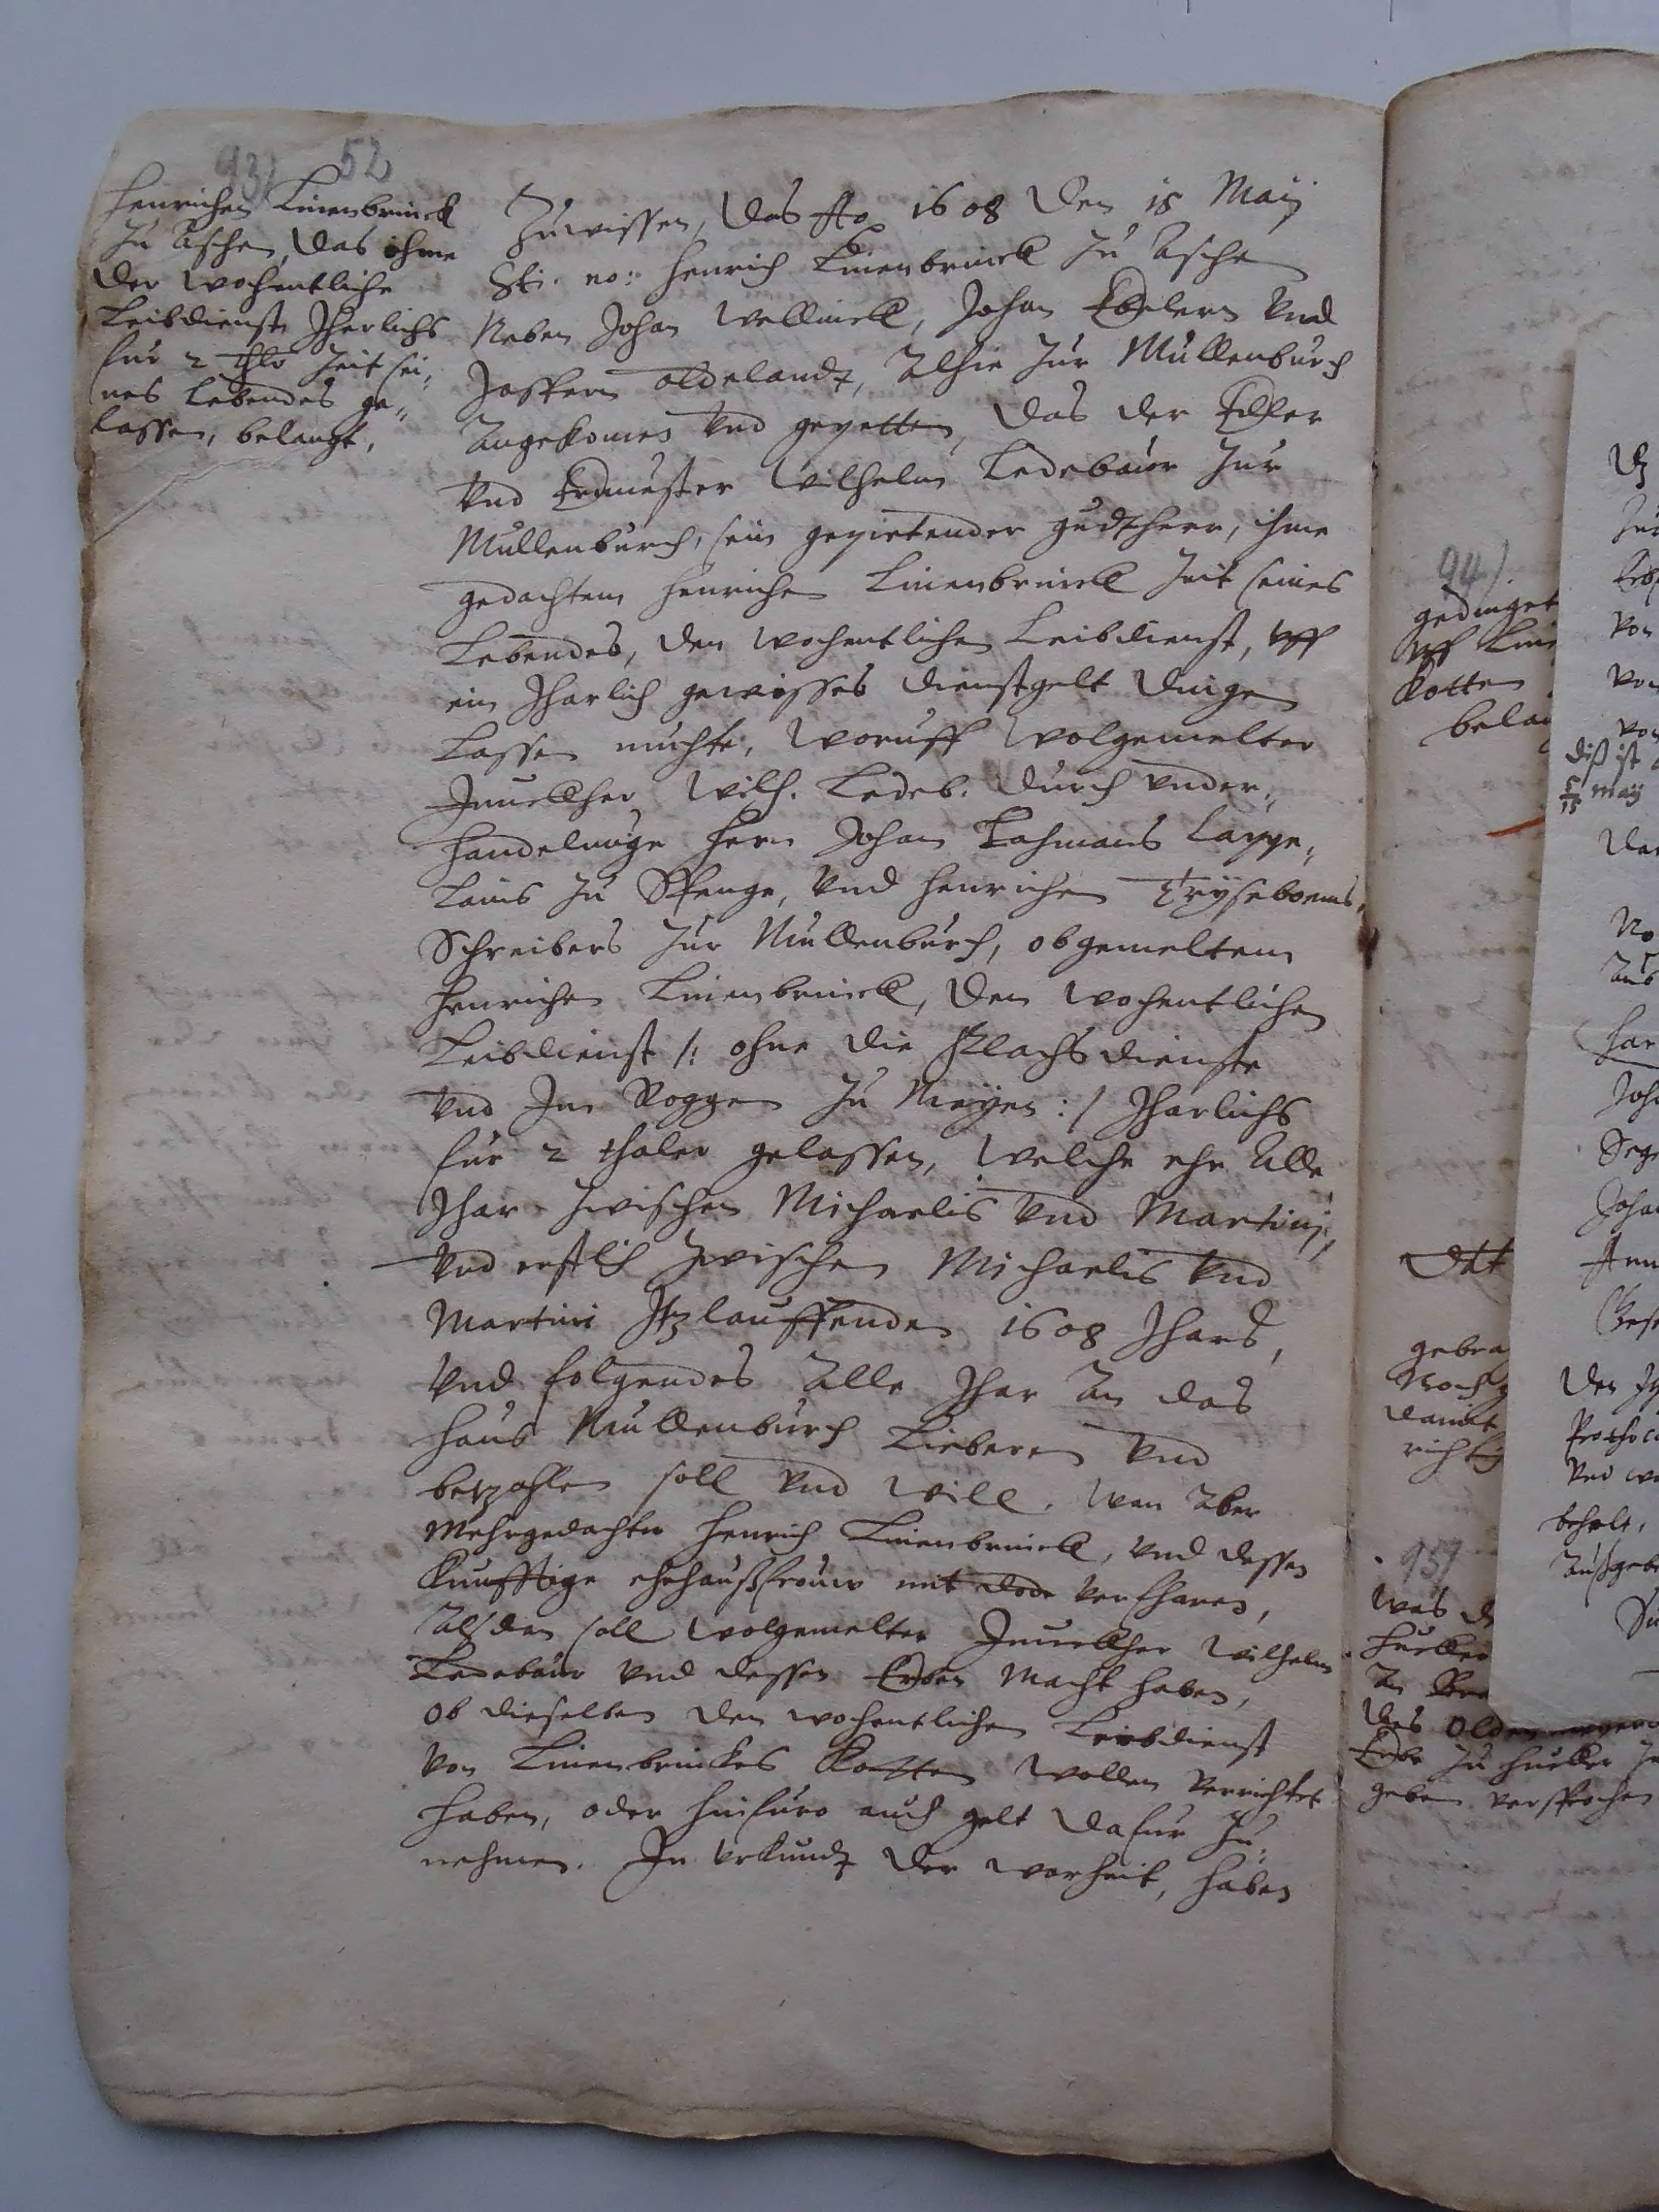 93) 52
Henrichen Linenbrinck
zu Aschen, das ohme
der wochentliche
Leibdienst Jherlichs
fur 2 thlr Zeit sei„
nes Lebendes ge„
lassen, belangt.
Zuwissen, das Ao 1608 den 15 Maij
St: no: Henrich Linenbrinck zu Aschen
Neben Johan Wellinck, Johan Ebelern vnd
Jostten Oldelandt, Alhie zur Mullenburch
Angekomen vnd gepetten, das der Edler
vnd Erenuester Wilhelm Ledebaur zur
Mullenburch, sein gepietender gudtherr, ihme
gedachtem Henrichen Linenbrinck Zeit seines
Lebendes, den wochentlichen Leibdienst, vff
ein Jharlich gewisses dienstgelt dingen
Lassen muchte, Woruff wolgemelter
Junckher Wilh. Ledeb. durch vnder„
handelunge hern Johan Lohmans Cappe„
Lans zu Spenge, vnd Henrichen
Schreibers zur Mullenburch, obgemeltem
Henrichen Linenbrinck, den wochentlichen
Leibdienst /: ohne die Flachsdienste
vnd Jm Roggen zu Meyen :/ Jharlichs
fur 2 thaler gelassen, Welche ehr Alle
Jhar zwischen Michaelis vnd Martinj,
vnd erstlich zwischen Michaelis vnd
Martini Jtzlauffenden 1608 Jhars,
vnd folgendes Alle Jhar An das
Haus Mullenburch Lieberen vnd
betzahlen soll vnd will. Wan Aber
Mehrgedachter Henrich Linenbrinck, vnd dessen
Kunfftige ehehaußfrouw mit dode verfharen,
Alsdan soll wolgemelter Junckher Wilhelm
Ledebaur vnd dessen Erben Macht haben,
ob dieselben den wochentlichen Leibdienst
von Linenbrinckes Kotten wollen verrichtet
haben, oder hinfuro auch gelt dafur zu„
nehmen. In vrkundt der warheit, haben
94).
gedinget
vff Line
Kotten
bela
gebra
Noch
damit
richtig
95)
was
An
des Oldenmeyers
Erbe zu Hucker
geben versprochen
von
von
von
diß ist
5/15 maij
No
Aus
har
Joh
Seg
Joha
Ann
den
vnd
behelt,
Außgeb